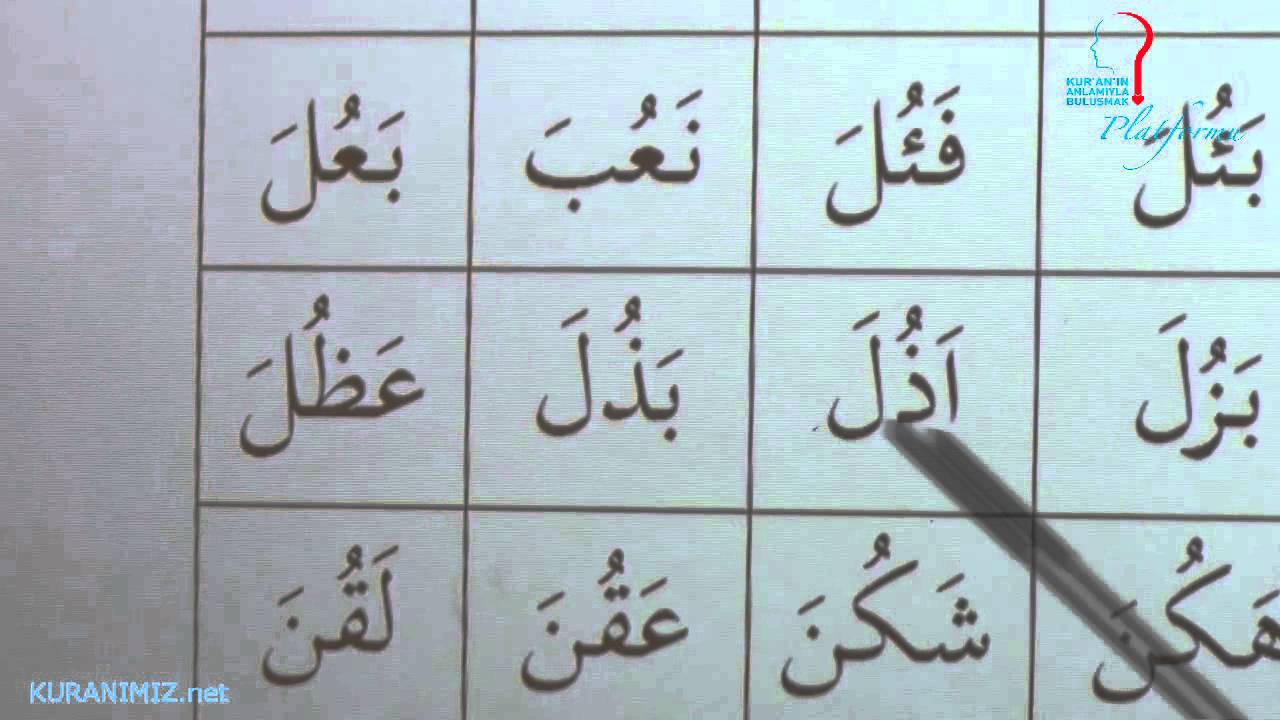 KUR'AN'IN
ANLAMIYLA
BULUŞMAK
Platformu
بَئُلَ فَئُلَ نَعُبَ بَعُلَ
بَزُلَ اَذُلَ بَذُلَ عَظُلَ
هَكُنَ شَكُنَ عَقُنَ لَقُنَ
KURANIMIZ.net